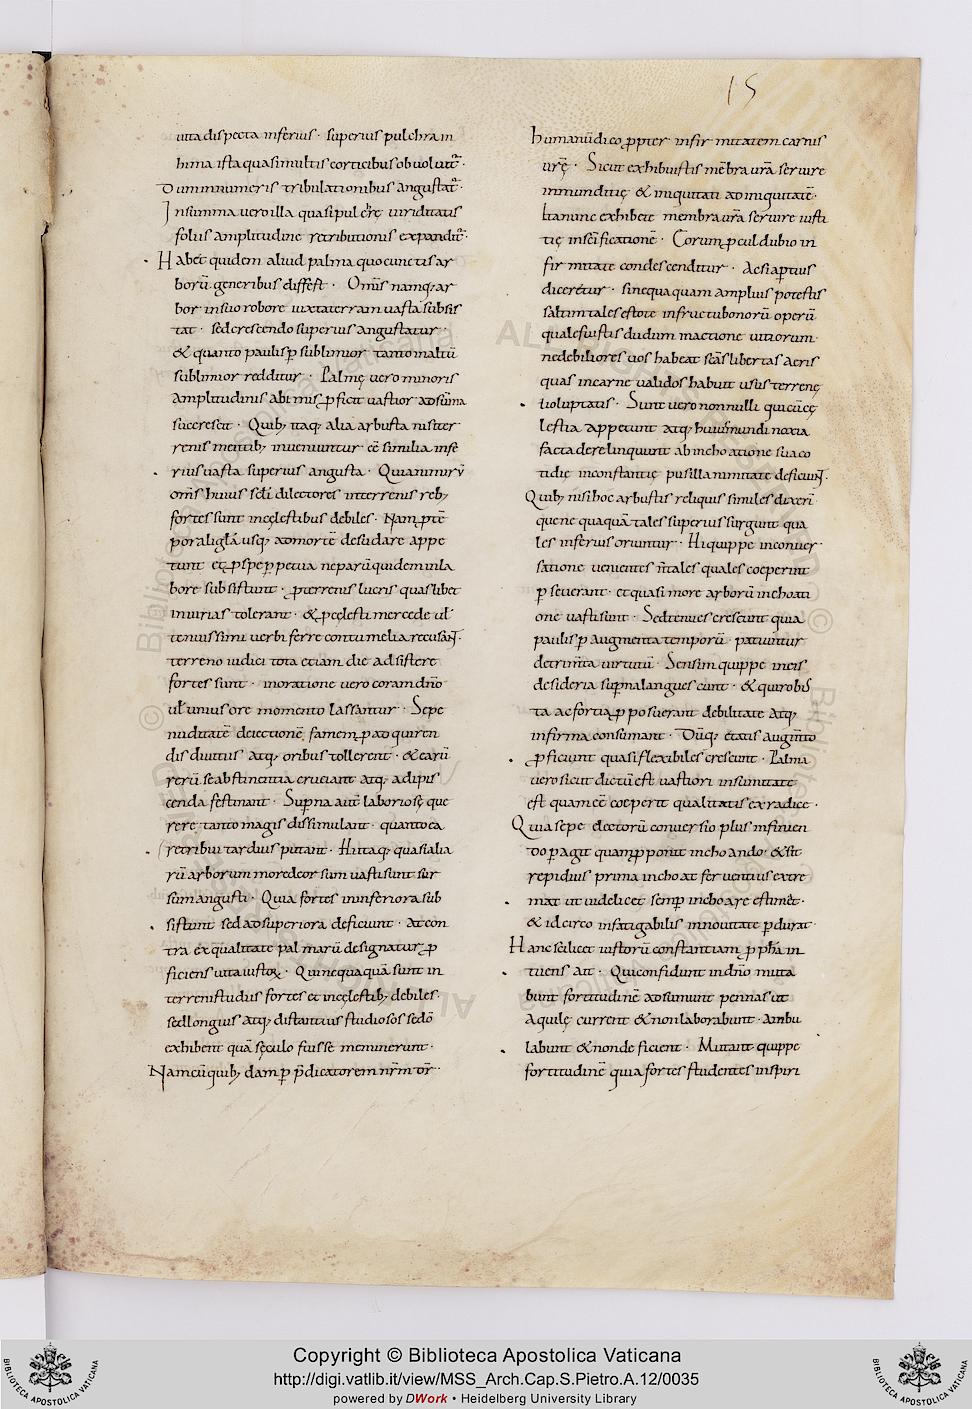 15
uita dispecta inferius · superius pulchra in
hima ista quasi multis corticibus obuoluit̄ ·
Dum innumeris tribulationibus angustat̄ ·
In summa uero illa quasi pulchrę uiriditatis
foliis amplitudine retributionis expandit̄ ·
Habet quidem aliud palma quo cunctis ar
borū generibus differt · Omīs namq; ar
bor in suo robore iuxta terram uasta subsis
tat · sed crescendo superius angustatur ·
& quanto paulisꝑ sublimior tanto in altū
sublimior redditur · Palmę uero minoris
amplitudinis ab imis ꝓficit uastior ad sūma
succrescit · Quib; itaq; alia arbusta nisi ter
renis mentib; inueniuntur eē similia infe
rius uasta superius angusta · Quia nimirū
om̄s huius sc̄li dilectores in terrenis reb;
fortes sunt in cęlestibus debiles · Nam ꝓ tē
porali gl̄a usq; ad mortē desudare appe
tunt et ꝓ spe ꝑpetua ne parū quidem in la
bore subsistunt · ꝓ terrenis lucris quaslibet
iniurias tolerant · & ꝓ cęlesti mercede uł
tenuissimi uerbi ferre contumelia recusant ·
terreno iudici tota etiam die adsistere
fortes sunt · in oratione uero coram dn̄o
uł unius ore momento lassantur · Sepe
nuditatē deiectionē famem ꝓ adquiren
dis diuitiis atq; onoribus tollerent · & earū
rerū se abstinentia cruciant atq; adipis
cenda festinant · Superna aut̄ laboriosę que
rere tanto magis dissimulant · quanto ea
retribui tardius putant · Hi itaq; quasi alia
rū arborum more deorsum uasti sunt sur
sum angusti · Quia fortes in inferiora sub
sistunt sed ad superiora deficiunt · At con
tra ex qualitate palmarū designatur ꝓ
ficiens uita iustoꝝ · Qui nequaquā sunt in
terrenis studiis fortes et in cęlestib; debiles ·
sed longius atq; distantius studiosos se dō
exhibent quā sęculo fuisse meminerunt ·
Nam cū quib;dam ꝑ p̄dicatorem nr̄m dr̄ ·
humanū dico ꝓpter infirmitatem carnis
urę̄ · Sicut exhibuistis mēbra urā seruire
inmunditię & iniquitati ad iniquitatē ·
Ita nunc exhibete membra urā seruire iusti
tię in sc̄ificationē · Eorum ꝓculdubio in
firmitate condescenditur · Ac si aꝑtius
dicerētur · si nequaquam amplius potestis
saltim tales estote in fructu bonorū operū
quales fuistis dudum in actione uitiorum
ne debiliores uos habeat sc̄a libertas aeris
quas in carne ualidos habuit usus terrenę
uoluptatis · Sunt uero nonnulli qui cū cę
lestia appetunt atq; huius mundi noxia
facta derelinquunt ab inchoatione sua co
tidie inconstantię pusillanimitate deficiunt ·
Quib; nisi hoc arbustis reliquis similes dixeri
que nequaquā tales superius surgunt qua
les inferius oriuntur · Hi quippe in conuer
satione uenientes n̄ tales quales coeperint
ꝑseuerant · et quasi more arborū inchoati
one uasti sunt · Sed tenues crescunt quia
paulisꝑ augmenta temporū · patiuntur
detrimta uirtutū · Sensim quippe in eis
desideria superna languescunt · & qui robus
ta ac fortia ꝓposuerant debilitate atq;
infirma consumant · Dūq; etatis augmto
ꝓficiunt quasi flexibiles crescunt · Palma
uero sicut dictū est uastiori in sumitate
est quam eē coeperit qualitatis ex radice ·
Quia sepe electorū conuersio plus in finien
do peragit quam ꝓponit inchoando · & si
tepidius prima inchoat feruentius extre
mat ut uidelicet semꝑ inchoare estimēt ·
& idcirco infatigabilis in nouitate ꝑdurat ·
Hanc scilicet iustorū constantiam ꝓpha in
tuens ait · Qui confidunt in dn̄o muta
bunt fortitudinē adsumunt pennas ut
aquilę current & non laborabunt · ambu
labunt & non deficient · Mutant quippe
fortitudinē quia fortes studentes in spiri
Copyright © Biblioteca Apostolica Vaticana
http://digi.vatlib.it/view/MSS_Arch.Cap.S.Pietro.A.12/0035
powered by DWork • Heidelberg University Library